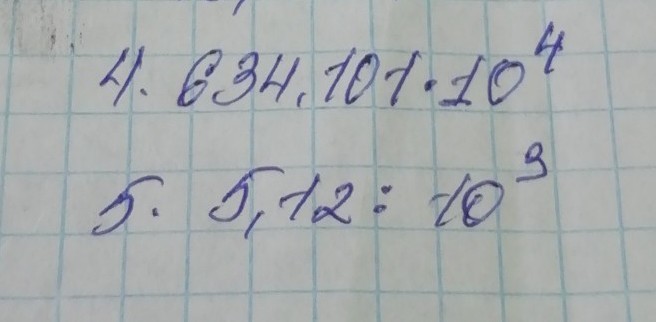 4. 634,101·10⁴
5. 5,12 : 10³